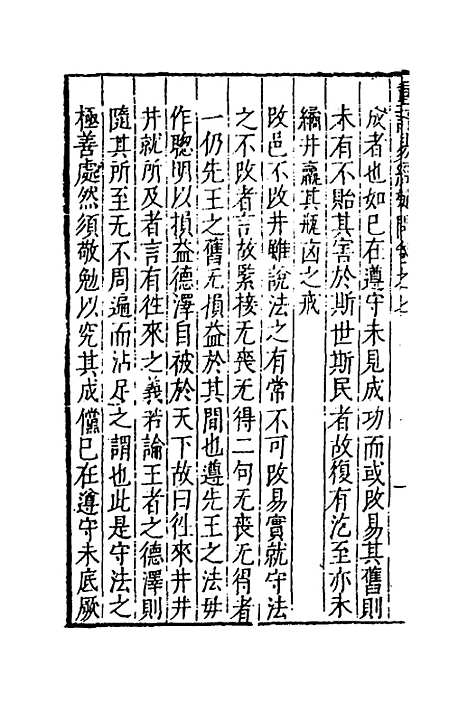 成者也如已在遵守未見成功而或改易其舊則
未有不貽其害於斯世斯民者故復有汔至亦未
繘井羸其瓶凶之戒
改邑不改井雖說法之有常不可改易實就守法
之不改者言故緊接无喪无得二句无喪无得者
一仍先王之舊无損益於其間也遵先王之法毋
作聰明以損益德澤自被於天下故曰往來井井
井就所及者言有往來之義若論王者之德澤則
隨其所至无不周遍而沾足之謂也此是守法之
極善處然須敬勉以究其成儻已在遵守未底厥